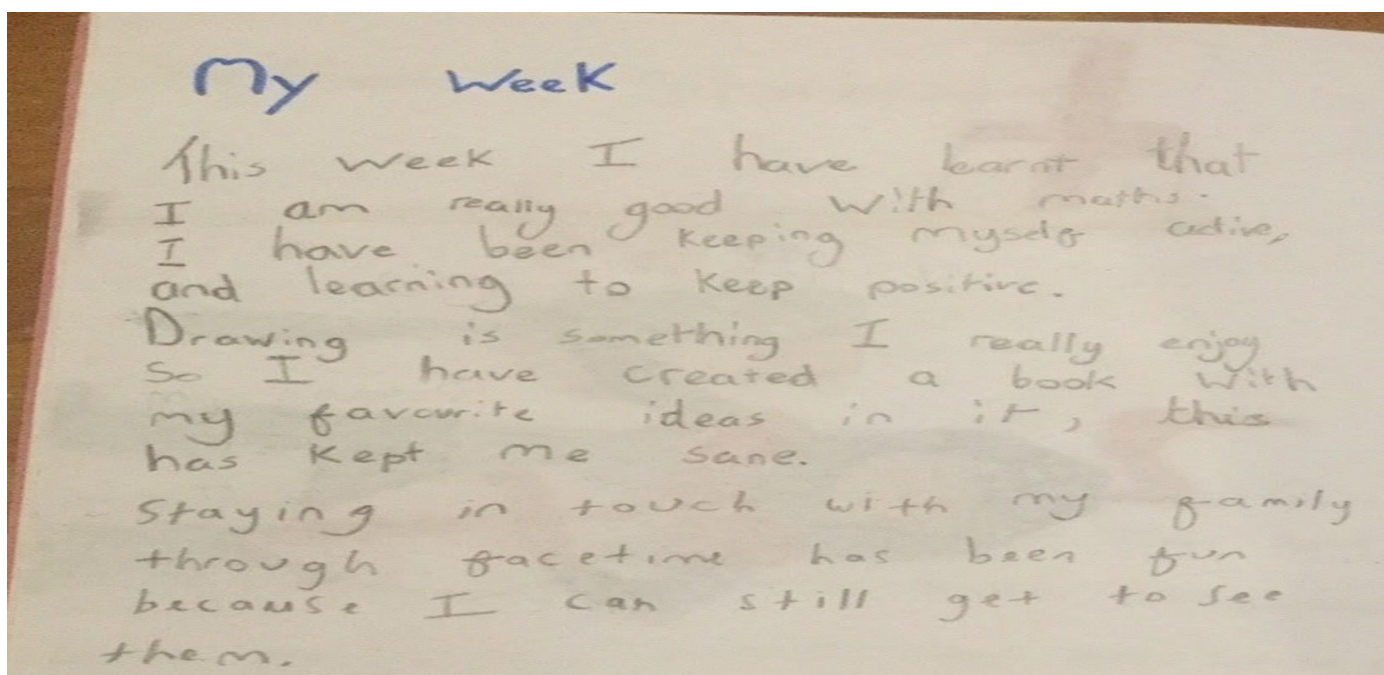 My Week
This week I have learnt that
I am really good with maths.
I have been keeping myself active,
and learning to keep positive.
Drawing is something I really enjoy
so I have created a book with
my favourite ideas in it, this
has kept me sane.
Staying in touch with my family
through facetime has been fun
because I can still get to see
them.